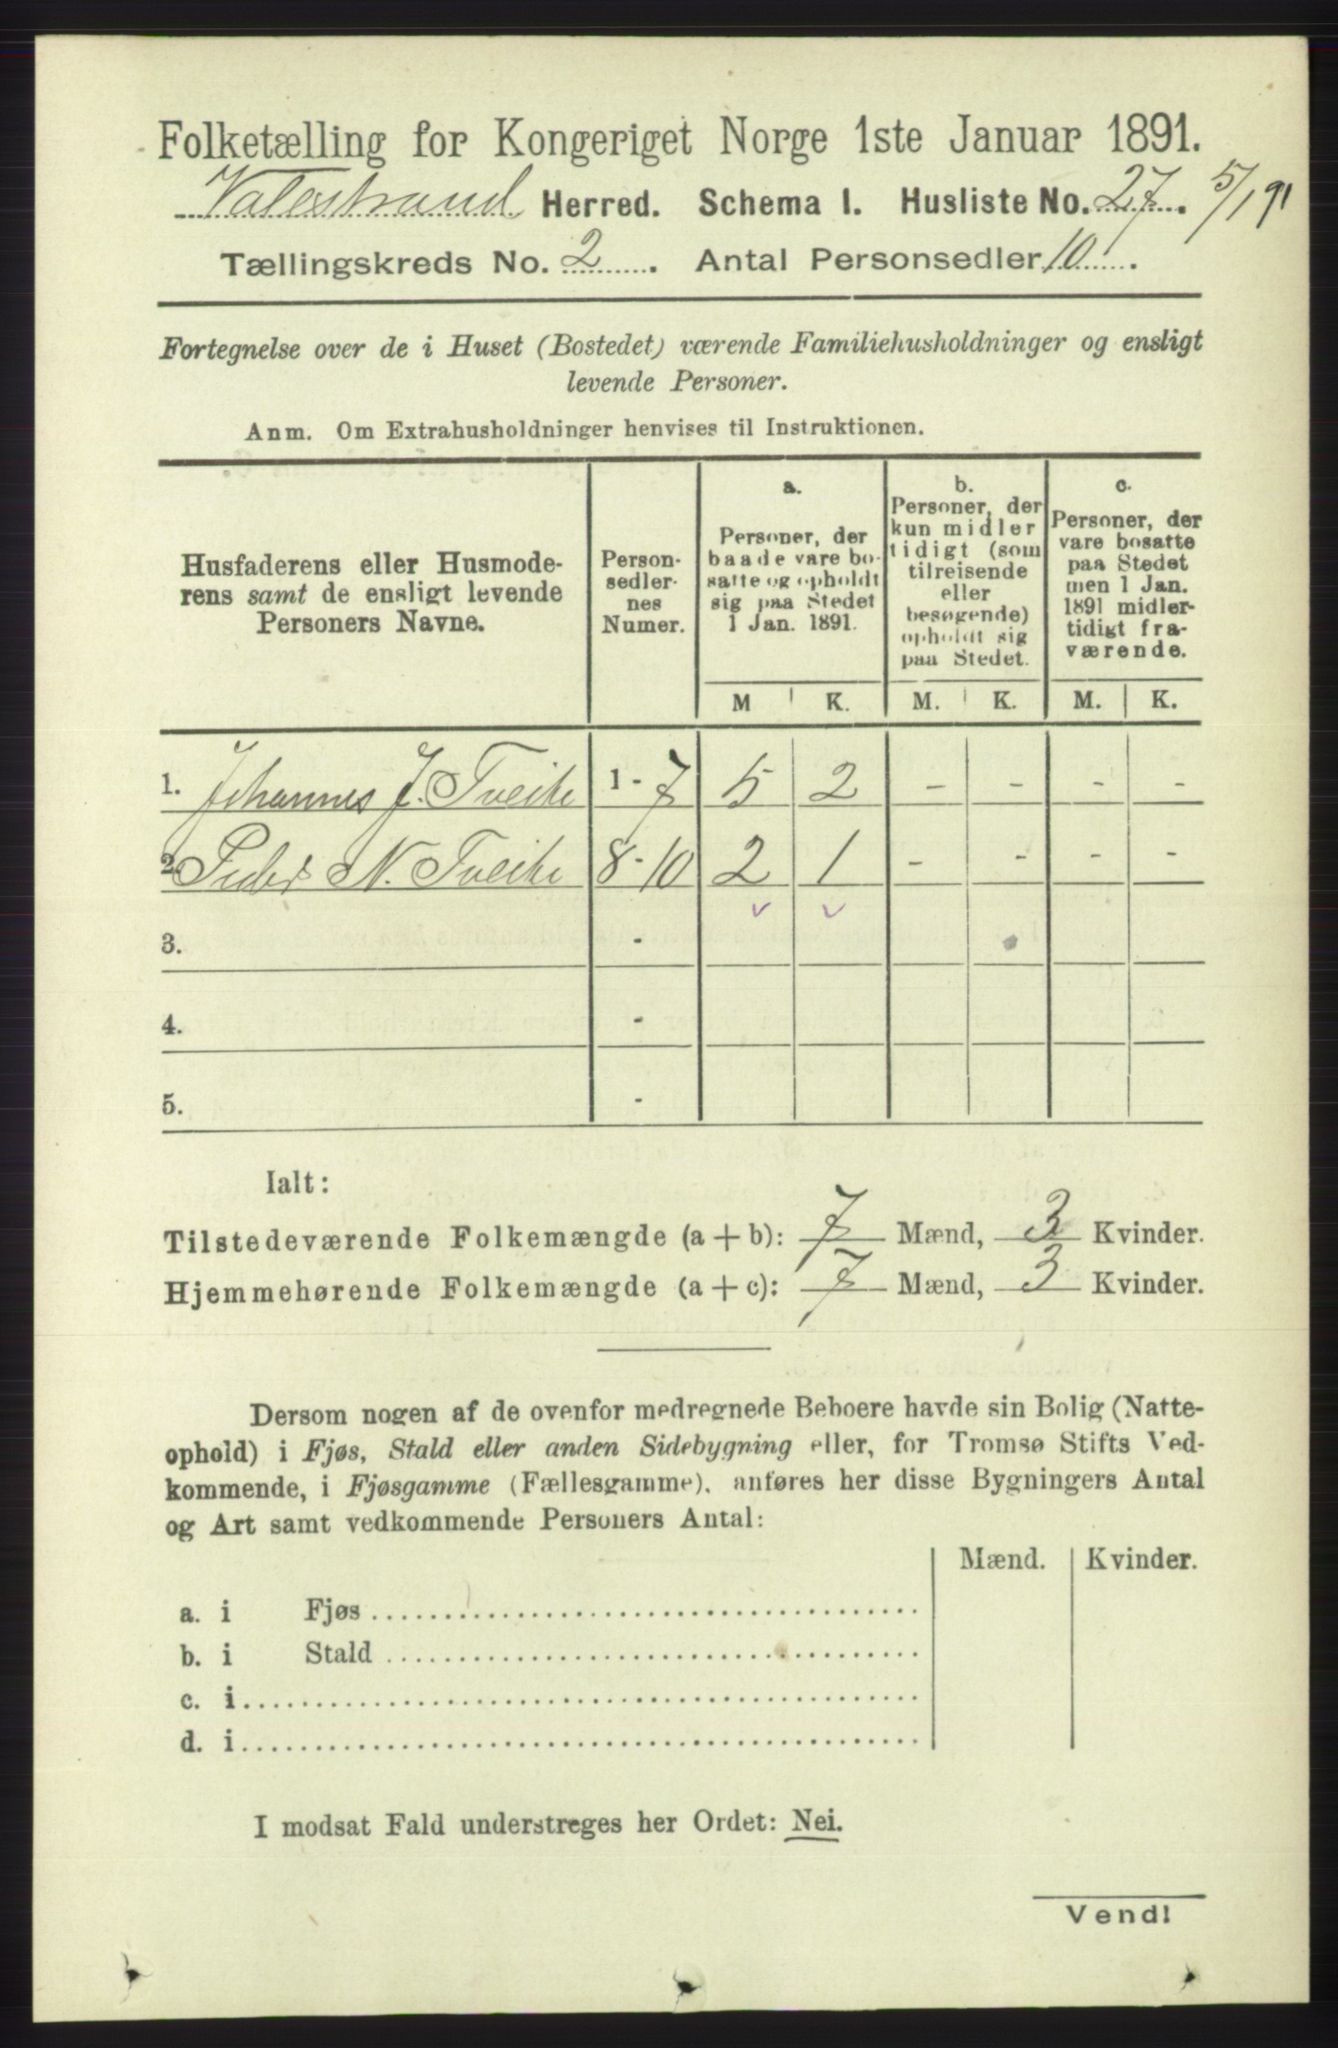 Folketælling for Kongeriget Norge 1ste Januar 1891.
Valestrand Herred. Schema I. Husliste No. 27. 5/1 91
Tællingskreds No. 2. Antal Personsedler 10.
Fortegnelse over de i Huset (Bostedet) værende Familiehusholdninger og ensligt
levende Personer.
Anm. Om Extrahusholdninger henvises til Instruktionen.
Husfaderens eller Husmode-
rens samt de ensligt levende
Personers Navne.
Person-
sedler-
nes
Numer.
a.
Personer, der
baade vare bo-
satte og opholdt
sig paa Stedet
1 Jan. 1891.
b.
Personer, der
kun midler
tidigt (som
tilreisende
eller
besøgende)
opholdt sig
paa Stedet.
c.
Personer, der
vare bosatte
paa Stedet
men 1 Jan.
1891 midler-
tidigt fra-
værende.
M K. M. K. M. K.
1. Johannes J. Tveite 1 - 7 5 2 - - - -
2. Peder N. Tveite 8 - 10 2 1 - - - -
3. -
4. -
5. -
Ialt:
Tilstedeværende Folkemængde (a + b): 7 Mænd, 3 Kvinder.
Hjemmehørende Folkemængde (a + c): 7 Mænd, 3 Kvinder.
Dersom nogen af de ovenfor medregnede Beboere havde sin Bolig (Natte-
ophold) i Fjøs, Stald eller anden Sidebygning eller, for Tromsø Stifts Ved-
kommende, i Fjøsgamme (Fællesgamme), anføres her disse Bygningers Antal
og Art samt vedkommende Personers Antal:
Mænd. Kvinder.
a. i Fjøs
b. i Stald
c. i
d. i
I modsat Fald understreges her Ordet: Nei.
Vend!